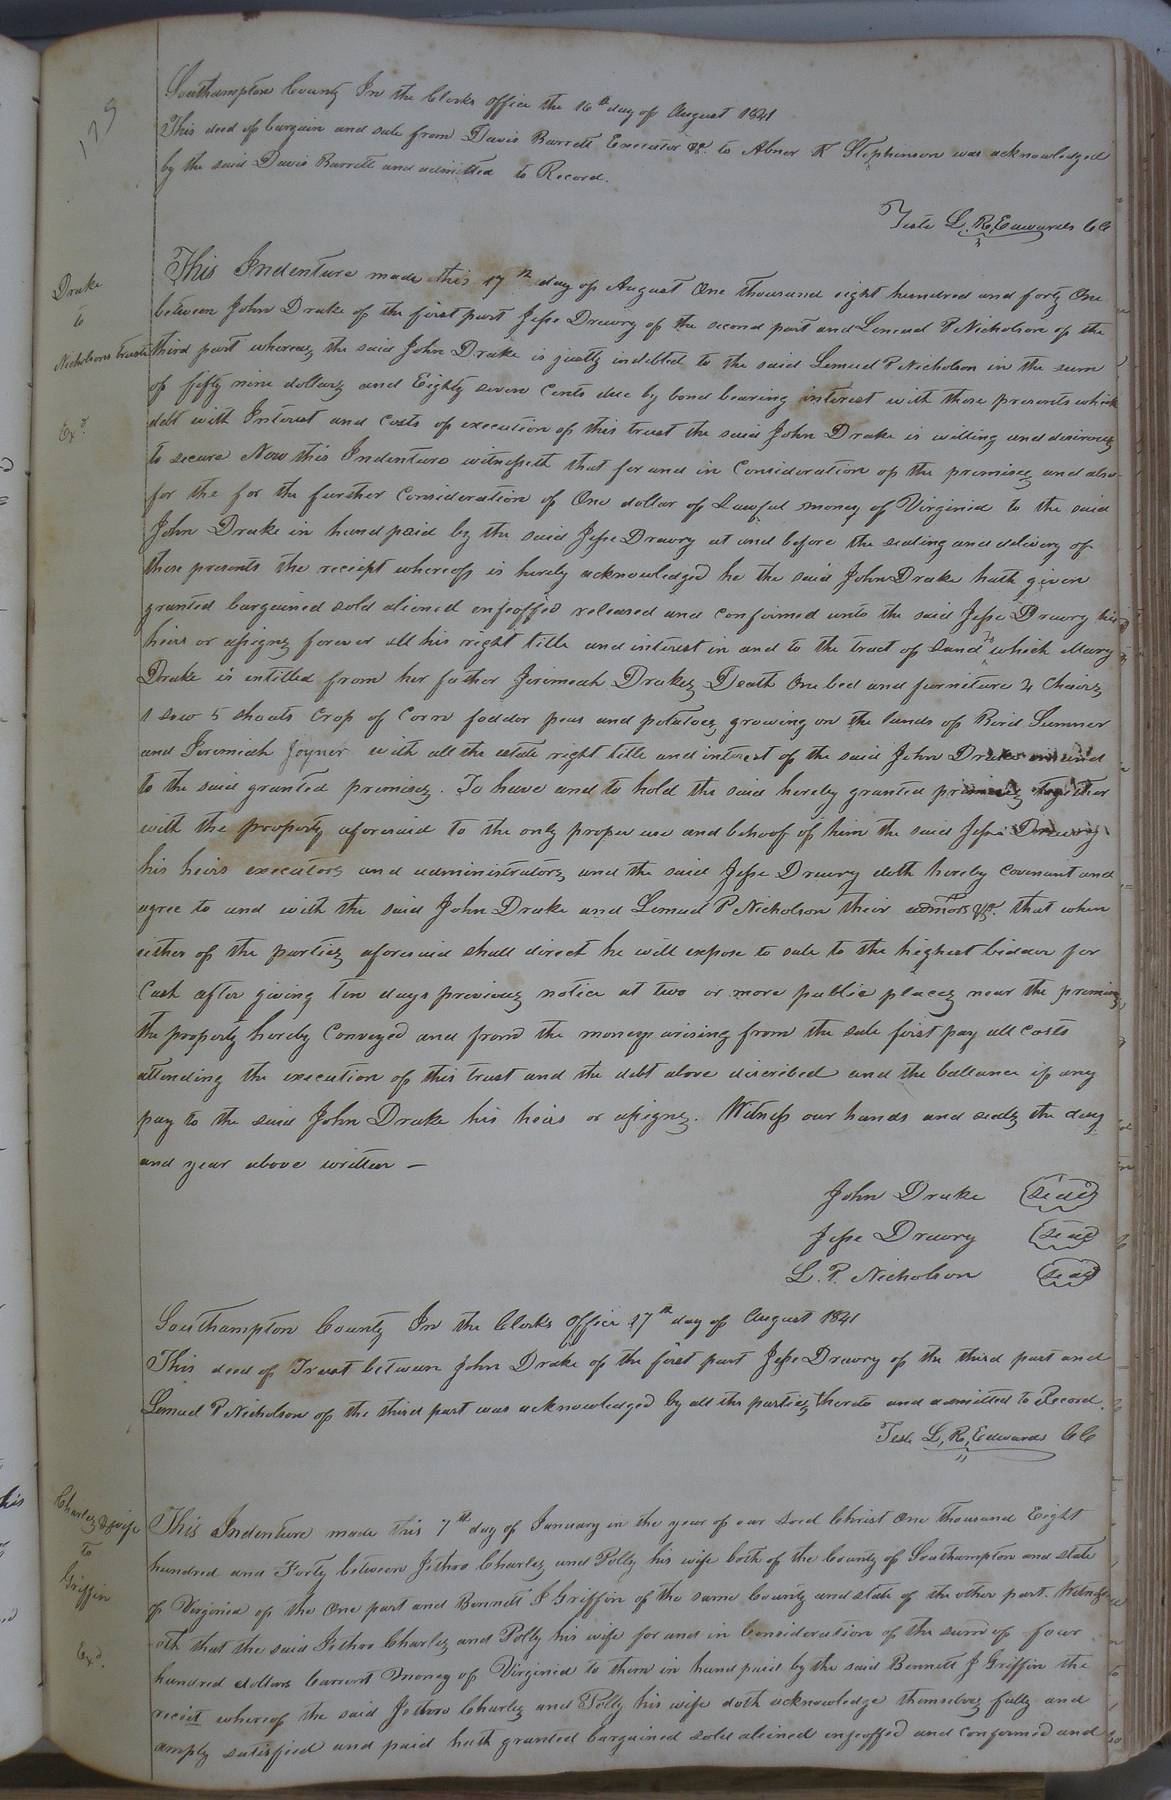 179
Southampton County In the Clerks office the 16th day of August 1841
This deed of bargain and sale from Davis Barrett Executor &c. to Abner K Stephenson was acknowledged
by the said Davis Barrett and admitted to Record.
Teste L. R. Edwards CC
Drake
to
Nicholsons trustee
Exd.
This Indenture made this 17th day of August One thousand eight hundred and forty One
between John Drake of the first part Jesse Drewry of the second part and Lemuel P Nicholson of the
third part whereas the said John Drake is justly indebted to the said Lemuel P Nicholson in the sum
of fifty nine dollars and Eighty seven Cents due by bond bearing interest with these presents which
debt with Interest and Costs of execution of this trust the said John Drake is willing and desirous
to secure Now this Indenture witnesseth that for and in Consideration of the premises and also
for the for the further Consideration of One dollar of Lawful money of Virginia to the said
John Drake in hand paid by the said Jesse Drewry at and before the sealing and delivery of
these presents the receipt whereof is hereby acknowledged he the said John Drake hath given
granted bargained sold aliened enfeoffed released and Confirmed unto the said Jesse Drewry his
heirs or assigns forever all his right title and interest in and to the tract of Land to which Mary
Drake is intitled from her father Jeremiah Drakes Death One bed and furniture 4 Chairs
1 sow 5 shoats Crop of Corn fodder peas and potatoes growing on the lands of Bird Sumner
and Jeremiah Joyner with all the estate right title and interest of the said John Drake in and
to the said granted premises. To have and to hold the said hereby granted premises together
with the property aforesaid to the only proper use and behoof of him the said Jesse Drewry
his heirs executors and administrators and the said Jesse Drewry doth hereby Covenant and
agree to and with the said John Drake and Lemuel P Nicholson their admors &c. that when
either of the parties aforesaid shall direct he will expose to sale to the highest bidder for
Cash after giving ten days previous notice at two or more public places near the premises
the property hereby Conveyed and from the moneys arising from the sale first pay all Costs
attending the execution of this trust and the debt above discribed and the ballance if any
pay to the said John Drake his heirs or assigns. Witness our hands and seals the day
and year above written —
John Drake (seal)
Jesse Drewry (seal)
L. P. Nicholson (seal)
Southampton County In the Clerks Office 17th day of August 1841
This deed of Trust between John Drake of the first part Jesse Drewry of the third part and
Lemuel P Nicholson of the third part was acknowledged by all the parties thereto and admitted to Record.
Teste L. R. Edwards CC
Charles & wife
to
Griffin
Exd.
This Indenture made this 7th day of January in the year of our Lord Christ One Thousand Eight
hundred and Forty between Jethro Charles and Polly his wife both of the County of Southampton and state
of Virginia of the One part and Bennett J Griffin of the same County and state of the other part. Witness
eth that the said Jethro Charles and Polly his wife for and in Consideration of the sum of four
hundred dollars Current money of Virginia to them in hand paid by the said Bennett J Griffin the
receit whereof the said Jethro Charles and Polly his wife doth acknowledge themselves fully and
amply satisfied and paid hath granted bargained sold aleined enfeoffed and Confirmed and